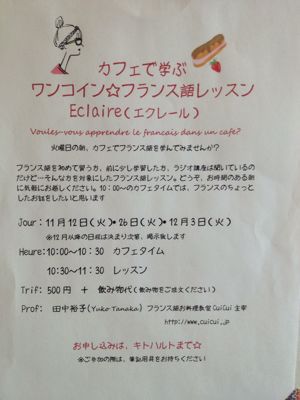 カフェで学ぶ
ワンコイン☆フランス語レッスン
Eclaire(エクレール)
Voulez-vous apprendre le francais dans un cafe?
火曜日の朝、カフェでフランス語を学んでみませんが!?
フランス語を初めて習う方、前に少し学習した方、ラジオ講座は聞いている
のだけど…そんな方を対象にしたフランス語レッスン。どうぞ、お時間のある朝
に気軽にお越しください。10:00~のカフェタイムでは、フランスのちょっと
したお話をしたいと思います
Jour:11月12日(火)・26日(火)・12月3日(火)
※12月以降の日程は決まり次第、掲示致します
Heure:10:00~10:30 カフェタイム
10:30~11:30 レッスン
Trif:500円 + 飲み物代(飲み物をご注文ください)
Prof: 田中裕子(Yuko Tanaka) フランス語お料理教室CuiCui 主宰
http://www.cuicui.jp
お申し込みは、キトハルトまで☆
※ご参加の際は、筆記用具をお持ちください